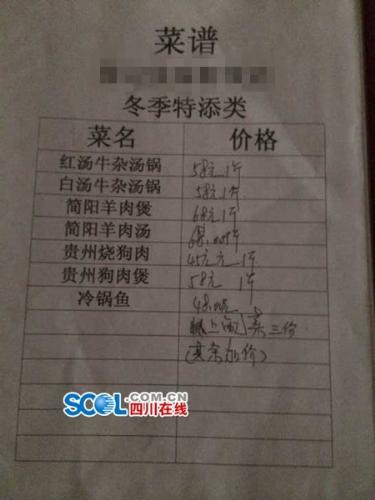 菜谱
冬季特添类
菜名 价格
红汤牛杂汤锅 58元1斤
白汤牛杂汤锅 58元1斤
简阳羊肉煲 68元1斤
简阳羊肉汤
贵州烧狗肉 45元 1斤
贵州狗肉煲 58元 1斤
冷锅鱼 48.00元
三份
(其余加价)
SCOL.COM.CN
四川在线